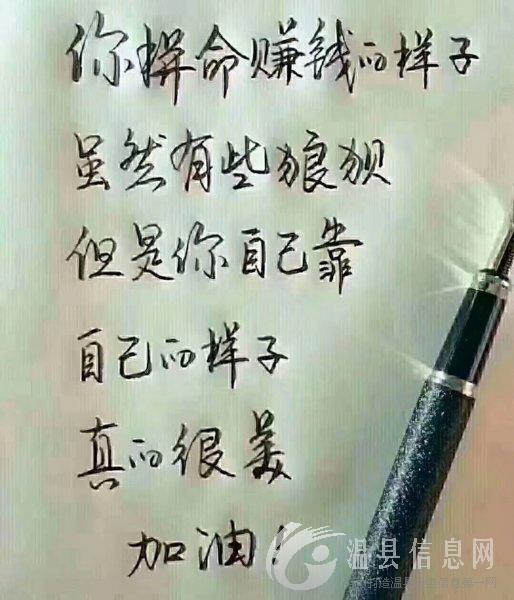 你拼命赚钱的样子
虽然有些狼狈
但是你自己靠
自己的样子
真的很美
加油！
温县信息网
打造温县信息第一网